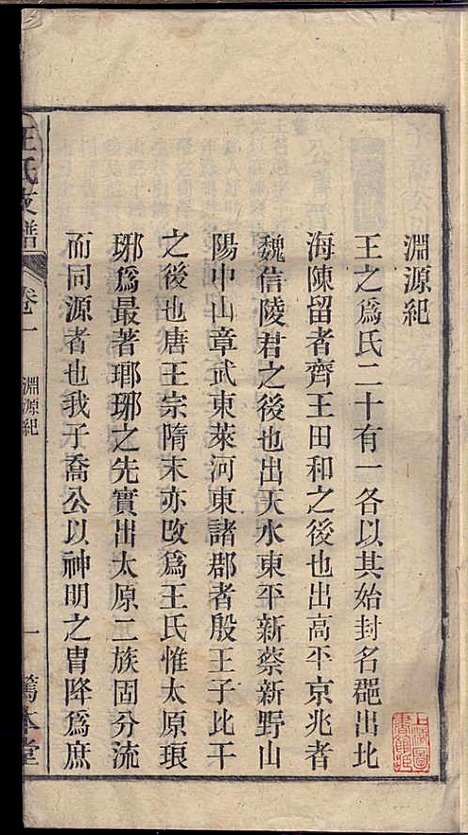 淵源紀
王之爲氏二十有一各以其始封名郡出北
海陳留者齊王田和之後也出高平京兆者
魏信陵君之後也出天水東平新蔡新野山
陽中山章武東萊河東諸郡者殷王子比干
之後也唐王宗隋末亦改爲王氏惟太原琅
琊爲最著琊琊之先實出太原二族固分流
而同源者也我子喬公以神明之胄降爲庶
王氏支譜
卷一
淵源紀
一
篤本堂